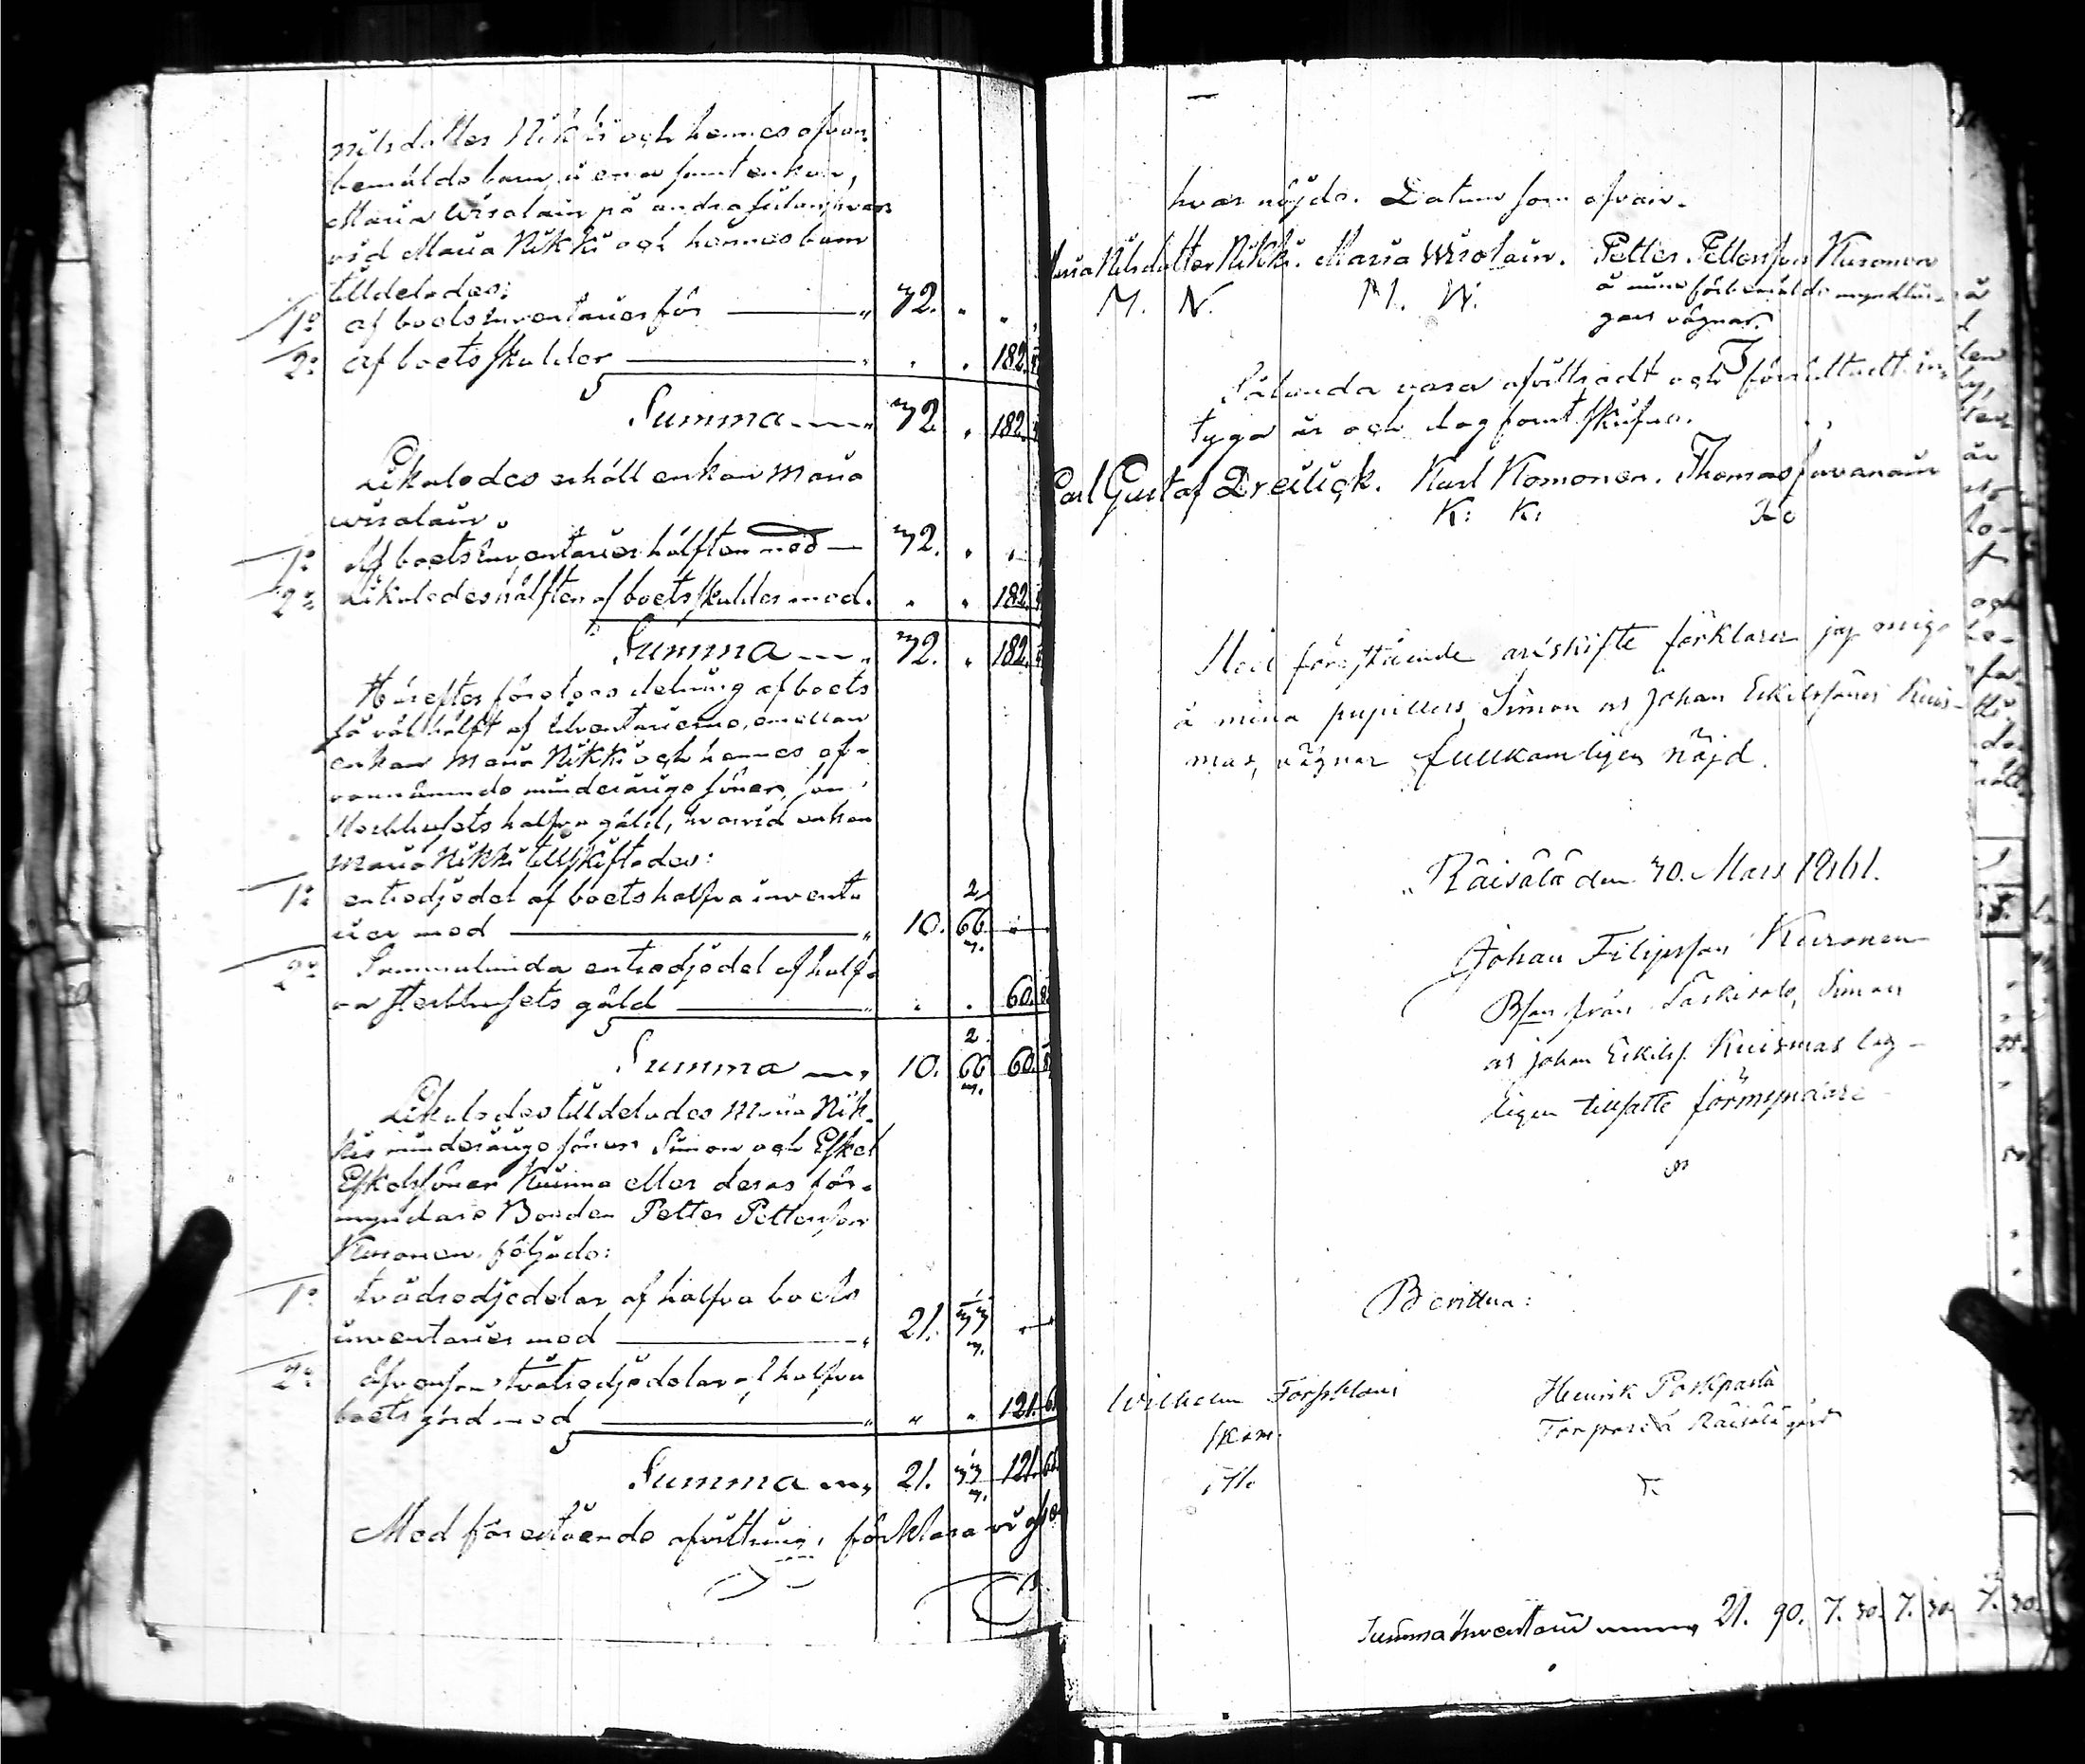 nilsdotter Nikki och hennes ofvan-
bemälde barn å ena samt enkan,
Maria Wirolain på andra sidan, hvar-
vid Maria Nikki och hennes barn
tilldelades:
1o af boets inventarier för — " 32. " "
2o af boets skulder — " " " 182.
Summa — " 32. " 182.
Likaledes erhöll enkan Maria
Wirolain:
1o Af boets inventarier hälften med — 32. " "
2o Likaledes hälften af boets skulder med. " " 182.
Summa — " 32. " 182.
Härefter företogs delning af boets
så väl hälft af inventarierne, emellan
enkan Maria Nikki och hennes of-
vannämnde minderårige söner, som
Sterbhusets halfva gäld, hvarvid enkan
Maria Nikki tillskiftades:
1o entredjedel af boets halfva inventa
rier med — " 10. 66 2/3. "
2o Sammalunda entredjedel af half-
va sterbhusets gäld — " " " 60.
Summa — " 10. 66 2/3. 60.
Likaledes tilldelades Maria Nik-
kis minderårige söner Simon och Eskel
Eskelssöner Kuisma eller deras för-
myndare Bonden Petter Pettersson
Kuronen, följade:
1o tvådredjedelar af halfva boets
inventarier med — " 21. 33 1/3. "
2o Äfvensom tvåtredjedelar af halfva
boets gäld med — " " " 121. 6
Summa — " 21. 33 1/3. 121. 6
Med förestående afvittring, förklara vi oss
hvar nöjde. Datum som ofvan.
Maria Nilsdotter Nikki. Maria Wirolain. Petter Pettersson Kuronen
M. N. M. W. å mine förbemälde myndlin-
gars vägnar.
Sålunda vara afvittradt och förrättadt in-
tyga år och dag som skrifvet.
Carl Gustaf Dreilick. Karl Komonen. Thomas Javanain
K: K:
Med förestående arfskifte förklarar jag mig
å mina pupillers, Simon os Johan Eskilssöners Kuis-
mas, vägnar fullkomligen nöjd.
Räisälä den 30. Mars 1861.
Johan Filipsson Kuronen
Bsen från Täskisalo, Simon
os Johan Eskilss. Kuismas lag-
ligen tillsatte förmyndare
Bevittna:
Wilhelm Forsblom Henrik Poskparta
Skom. Torpare å Räisälä gård
Summa Inventarii 21. 90. 7. 30. 7. 30. 7. 30.